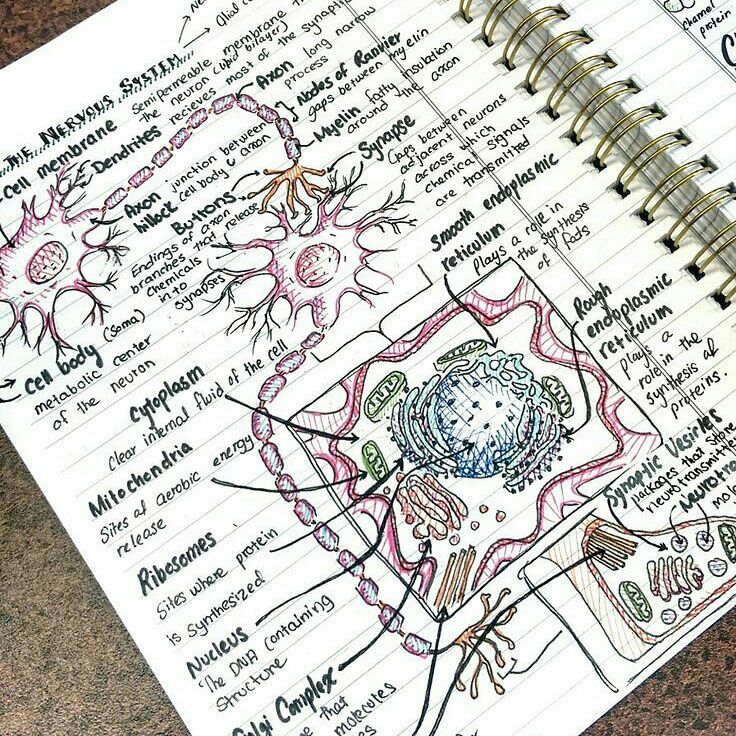 Glial cel
THE NERVOUS SYSTEM
Cell membrane
Semipermeable membrane th
the neuron (lipid bilayer)
Dendrites
recieves most of the synaptic
Axon
long narrow
process
Nodes of Ranvier
gaps between myelin
Myelin
fatty insulation
around the axon
Axon
hillock
junction between
cell body & axon
Synapse
Gaps between
adjacent neurons
across which
chemical signals
are transmitted
Buttons
Endings of axon
branches that release
chemicals
into
synapses
Cell body (soma)
metabolic center
of the neuron
Smooth endoplasmic
reticulum
plays a role in
the synthesis
of fats
Rough
endoplasmic
reticulum
plays a
role in the
synthesis of
proteins.
Cytoplasm
Clear internal fluid of the cell
Mitochondria
Sites of aerobic energy
release
Ribosomes
Sites where protein
is synthesized
Nucleus
The DNA containing
structure
Golgi Complex
that
molecules
Synaptic Vesicles
packages that store
neurotransmitte
Neurotra
mole
Channel
protein